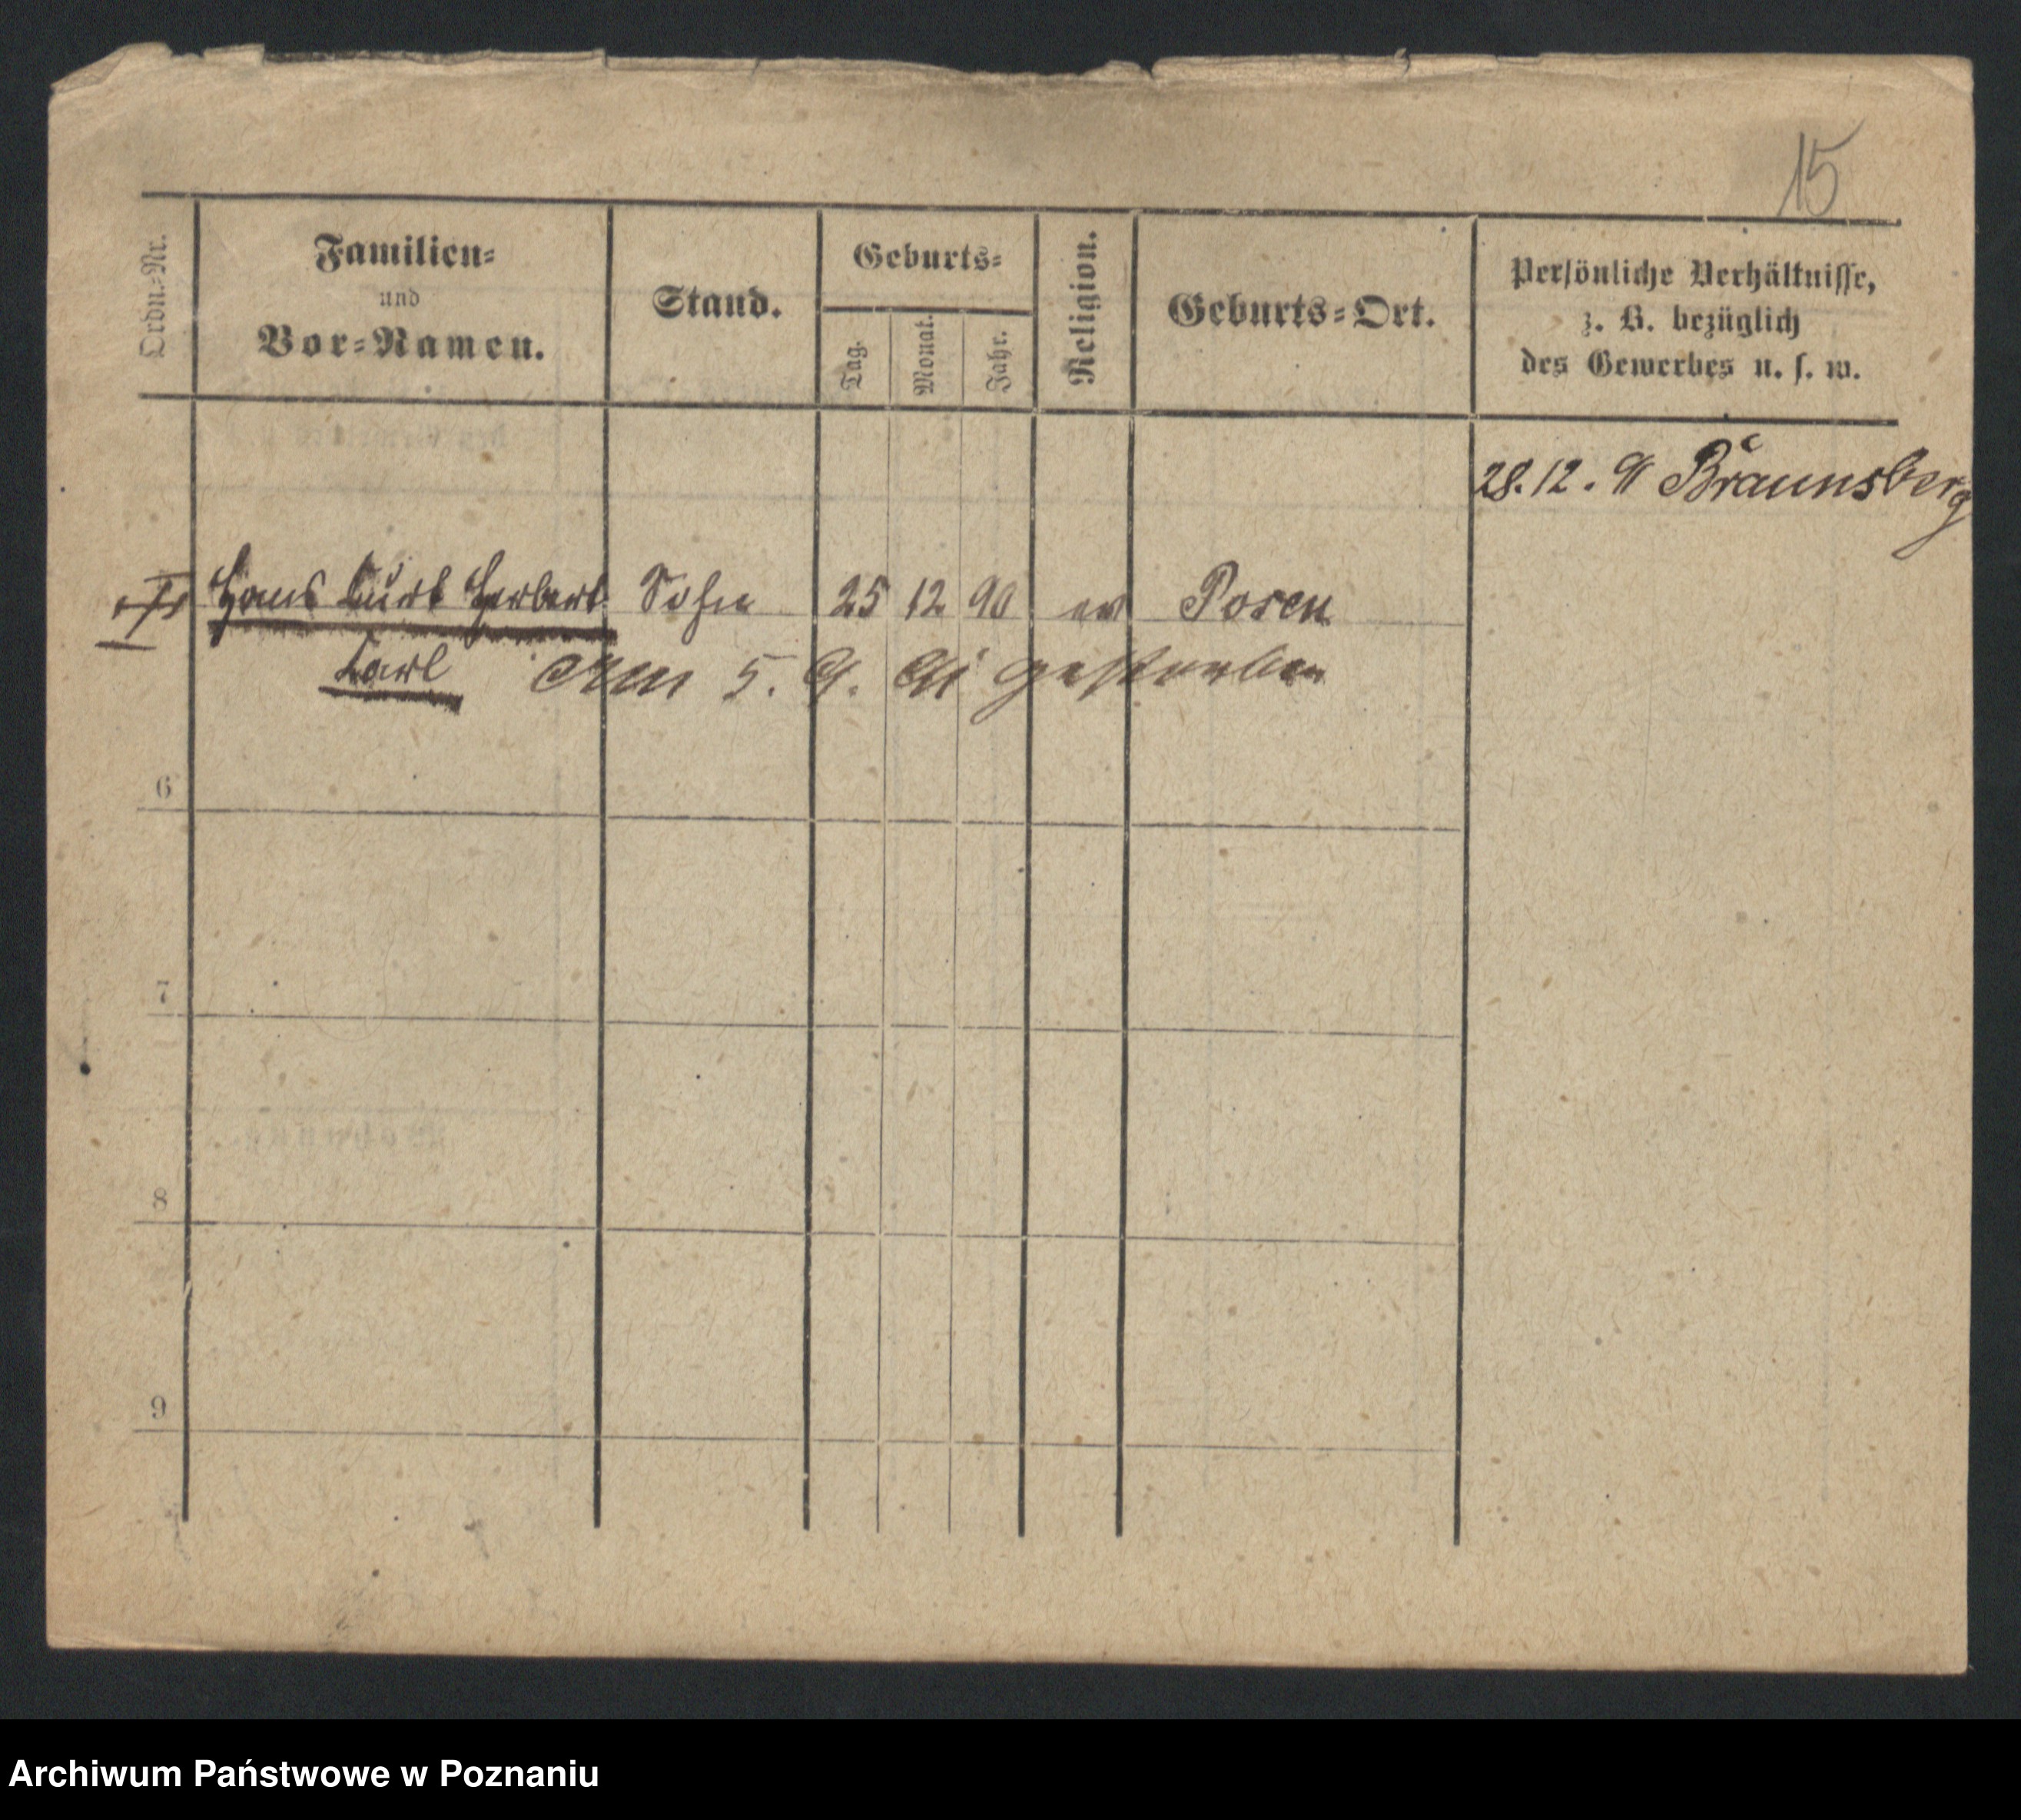 15
Ordn.-Nr.
Familien-
und
Vor-Namen.
Stand.
Geburts-
Tag.
Monat.
Jahr.
Religion.
Geburts-Ort.
Persönliche Verhältnisse,
z. B. bezüglich
des Gewerbes u. s. w.
28. 12. 91 Braunsberg
Hans Curt Herbert Sohn 25 12 90 ev Posen
Carl Am 5. 9. 91 gestorben
6
7
8
9
Archiwum Państwowe w Poznaniu